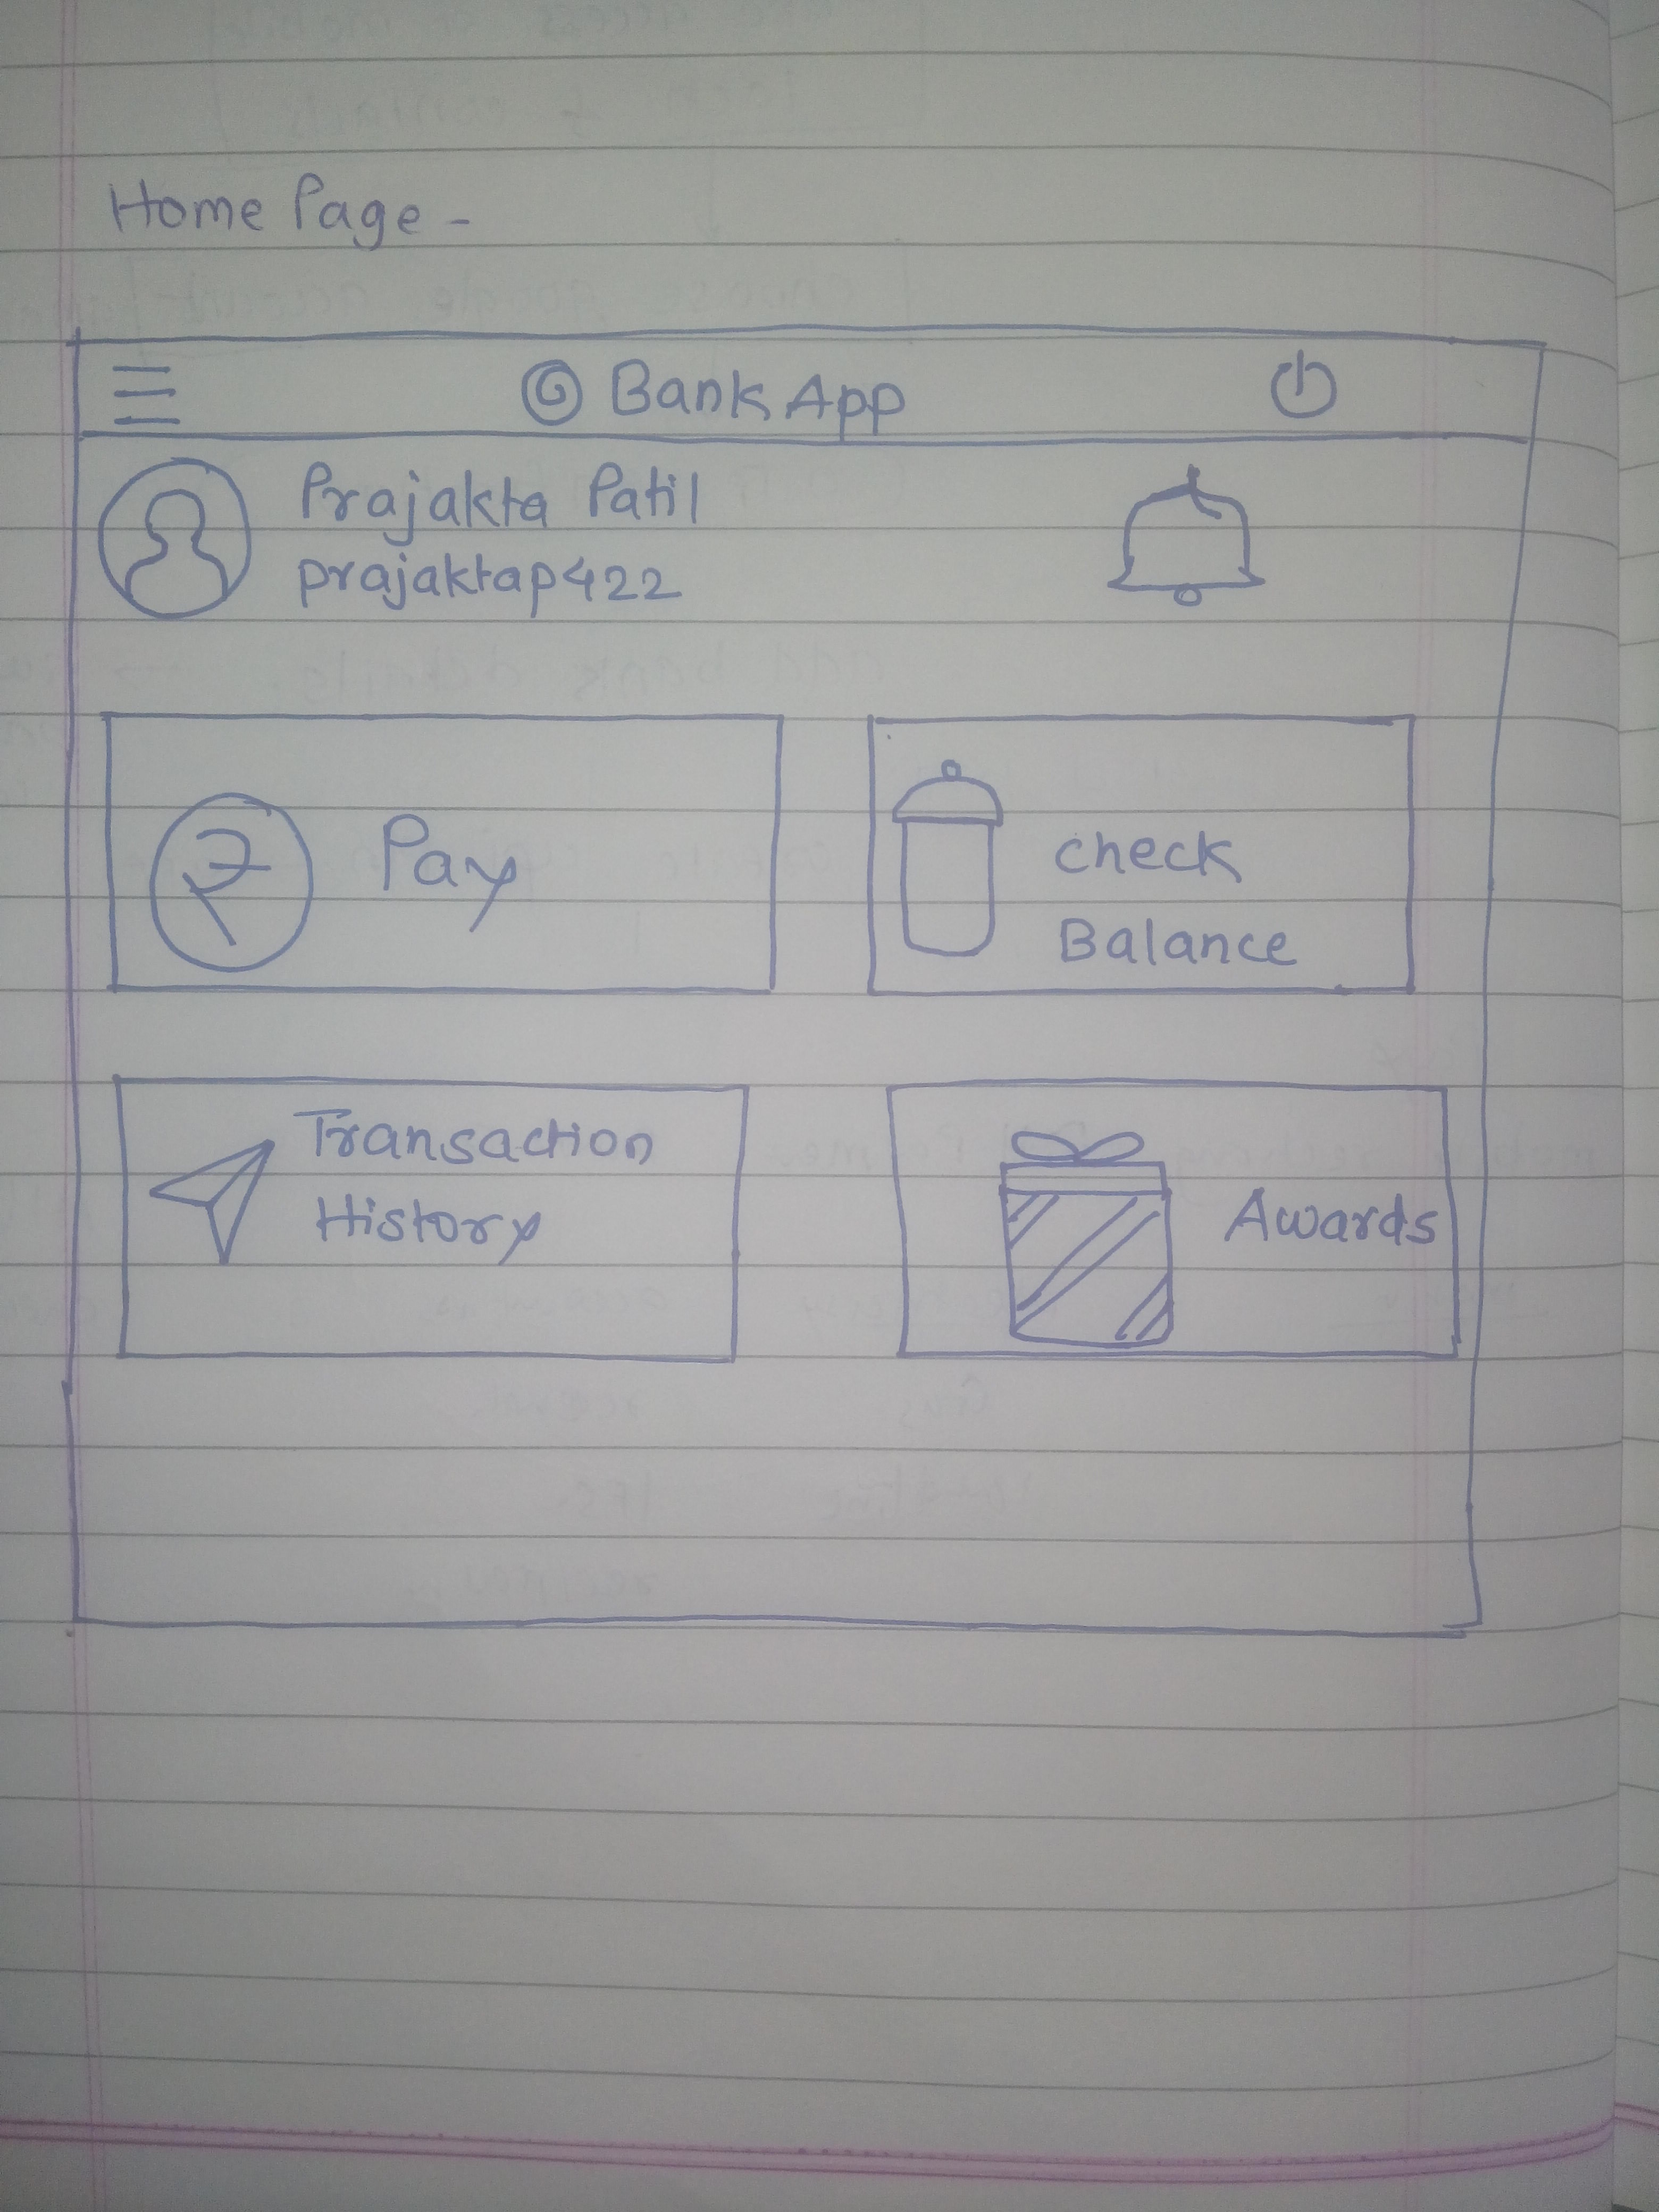 Home Page -
Bank App
Prajakta Patil
prajaktap422
₹ Pay
check
Balance
Transaction
History
Awards